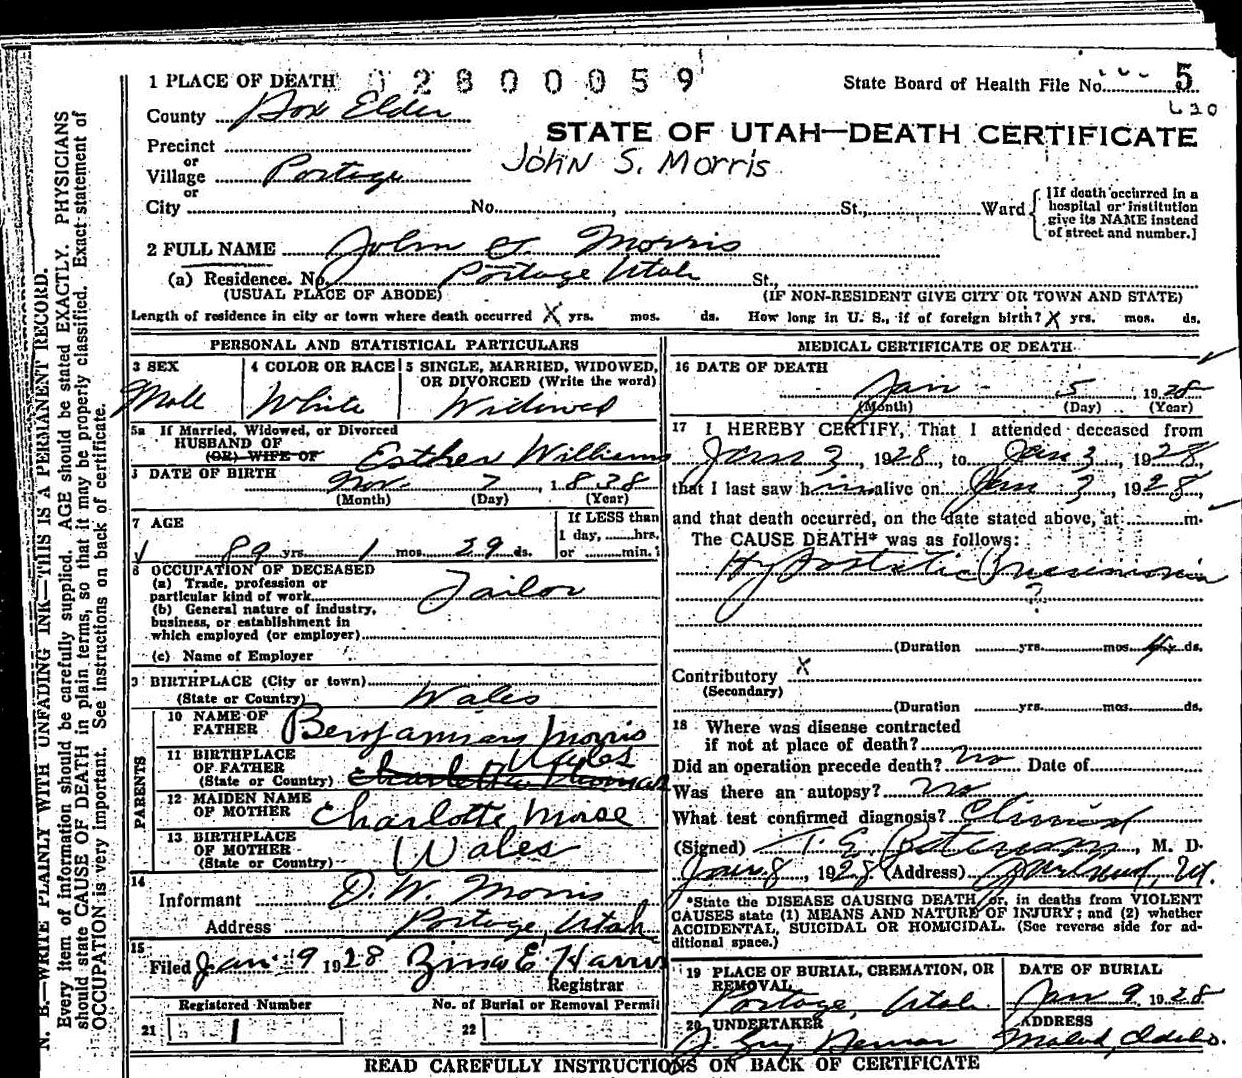 1 PLACE OF DEATH 02800059 State Board of Health File No. 5
620
County Box Elder
STATE OF UTAH—DEATH CERTIFICATE
Precinct
or
John S. Morris
Village Portage
or
City No. , St., Ward
[If death occurred in a
hospital or institution
give its NAME instead
of street and number.]
2 FULL NAME John S Morris
(a) Residence. No. Portage Utah St.,
(USUAL PLACE OF ABODE) (IF NON-RESIDENT GIVE CITY OR TOWN AND STATE)
Length of residence in city or town where death occurred X yrs. mos. ds. How long in U. S., if of foreign birth? X yrs. mos. ds.
PERSONAL AND STATISTICAL PARTICULARS
3 SEX 4 COLOR OR RACE 5 SINGLE, MARRIED, WIDOWED,
OR DIVORCED (Write the word)
Male White Widowed
5a If Married, Widowed, or Divorced
HUSBAND OF
(OR) WIFE OF Esther Williams
DATE OF BIRTH Nov. 7, 1838
(Month) (Day) (Year)
7 AGE If LESS than
1 day, hrs.
89 yrs. 1 mos. 29 ds. or min.
8 OCCUPATION OF DECEASED
(a) Trade, profession or
particular kind of work Tailor
(b) General nature of industry,
business, or establishment in
which employed (or employer)
(c) Name of Employer
9 BIRTHPLACE (City or town)
(State or Country) Wales
PARENTS
10 NAME OF
FATHER Benjamin Morris
11 BIRTHPLACE
OF FATHER Wales
(State or Country)
12 MAIDEN NAME
OF MOTHER Charlotte Morse
13 BIRTHPLACE
OF MOTHER
(State or Country) Wales
14
Informant D. W. Morris
Address Portage, Utah
15
Filed Jan. 9 1928 Zina E Harris
Registrar
Registered Number No. of Burial or Removal Permit
21 1 22
MEDICAL CERTIFICATE OF DEATH
16 DATE OF DEATH
Jan 5 1928
(Month) (Day) (Year)
17 I HEREBY CERTIFY, That I attended deceased from
Jan 3, 1928, to Jan 3, 1928,
that I last saw him alive on Jan 3, 1928
and that death occurred, on the date stated above, at m.
The CAUSE DEATH* was as follows:
Hypostatic Pneumonia
?
(Duration yrs. mos. ds.
Contributory X
(Secondary)
(Duration yrs. mos. ds.
18 Where was disease contracted
if not at place of death?
Did an operation precede death? no Date of
Was there an autopsy? no
What test confirmed diagnosis? Clinical
(Signed) T. E. , M. D.
Jan. 8, 1928 (Address) Garland, Ut.
*State the DISEASE CAUSING DEATH, or, in deaths from VIOLENT
CAUSES state (1) MEANS AND NATURE OF INJURY; and (2) whether
ACCIDENTAL, SUICIDAL OR HOMICIDAL. (See reverse side for ad-
ditional space.)
19 PLACE OF BURIAL, CREMATION, OR
REMOVAL DATE OF BURIAL
Portage, Utah Jan 9 1928
20 UNDERTAKER ADDRESS
J. Guy Malad, Idaho.
READ CAREFULLY INSTRUCTIONS ON BACK OF CERTIFICATE
N. B.—WRITE PLAINLY WITH UNFADING INK—THIS IS A PERMANENT RECORD.
Every item of information should be carefully supplied. AGE should be stated EXACTLY. PHYSICIANS
should state CAUSE OF DEATH in plain terms, so that it may be properly classified. Exact statement of
OCCUPATION is very important. See instructions on back of certificate.